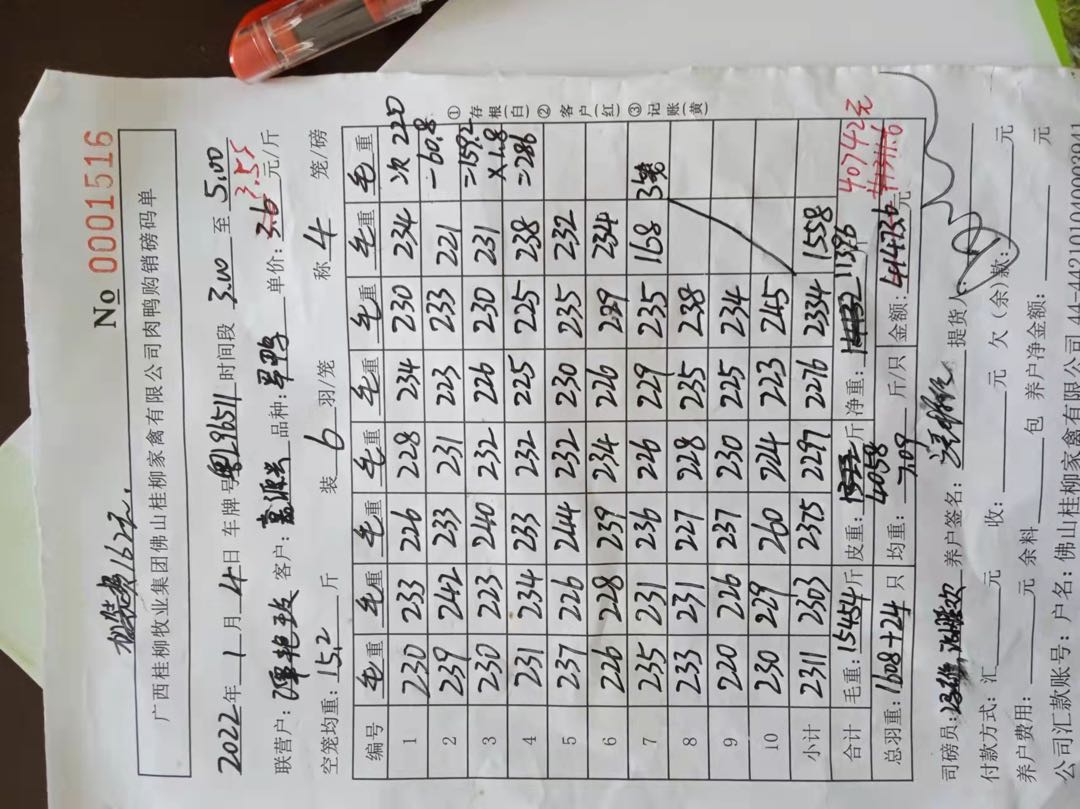 No 0001516
广西桂柳牧业集团佛山桂柳家禽有限公司肉鸭购销磅码单
2022年1月4日 车牌号 时间段 3.00 至 5.00
联营户: 客户: 品种: 单价: 3.6 3.55 元/斤
空笼均重: 15.2 斤 装 6 羽/笼 称 4 笼/磅
编号 毛重 毛重 毛重 毛重 毛重 毛重 毛重 毛重
1 230 233 226 228 234 230 234 次 220
2 239 242 233 231 223 233 221 -60.8
3 230 223 240 232 226 230 231 =159.2
4 231 234 233 232 225 225 238 ×1.8
=286
5 237 226 244 232 230 235 232
6 226 228 239 234 226 229 234
7 235 231 236 226 229 235 168 3笼
8 233 231 227 228 235 238
9 220 226 237 230 225 234
10 230 229 260 224 223 245
小计 2311 2303 2375 2297 2276 2334 1558
合计 毛重: 15454 斤 皮重: 4058 斤 净重: 11396 斤 40742元
总羽重: 1608+24 只 均重: 7.09 斤/只 金额: 41473.6 元
司磅员: 养户签名: 提货人:
付款方式: 汇 元 收: 元 欠(余)款: 元
养户费用: 元 余料 包 养户净金额: 元
公司汇款账号: 户名: 佛山桂柳家禽有限公司
①存根(白) ②客户(红) ③记账(黄)